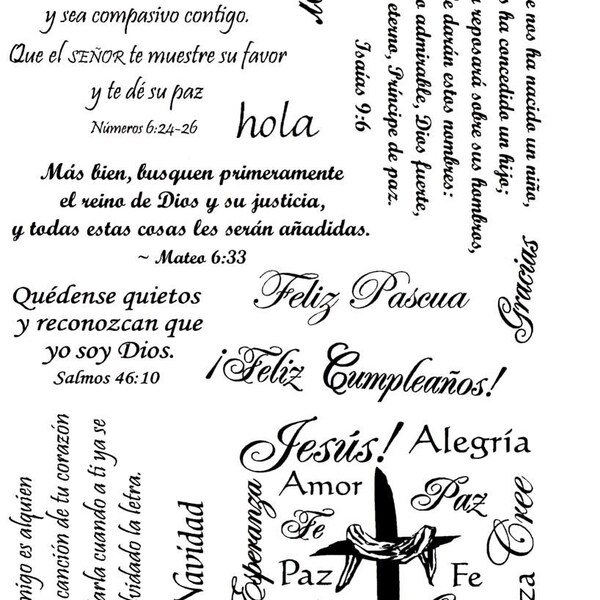 y sea compasivo contigo.
Que el SEÑOR te muestre su favor
y te dé su paz
Números 6:24-26
hola
nos ha nacido un niño,
ha concedido un hijo;
reposará sobre sus hombros,
darán estos nombres:
admirable, Dios fuerte,
eterno, Príncipe de paz.
Isaías 9:6
Más bien, busquen primeramente
el reino de Dios y su justicia,
y todas estas cosas les serán añadidas.
~ Mateo 6:33
Gracias
Feliz Pascua
Quédense quietos
y reconozcan que
yo soy Dios.
Salmos 46:10
¡Feliz Cumpleaños!
es alguien
canción de tu corazón
cuando a ti ya se
la letra.
Navidad
Jesús!
Alegría
Amor
Paz
Esperanza
Fe
Cree
Paz
Fe